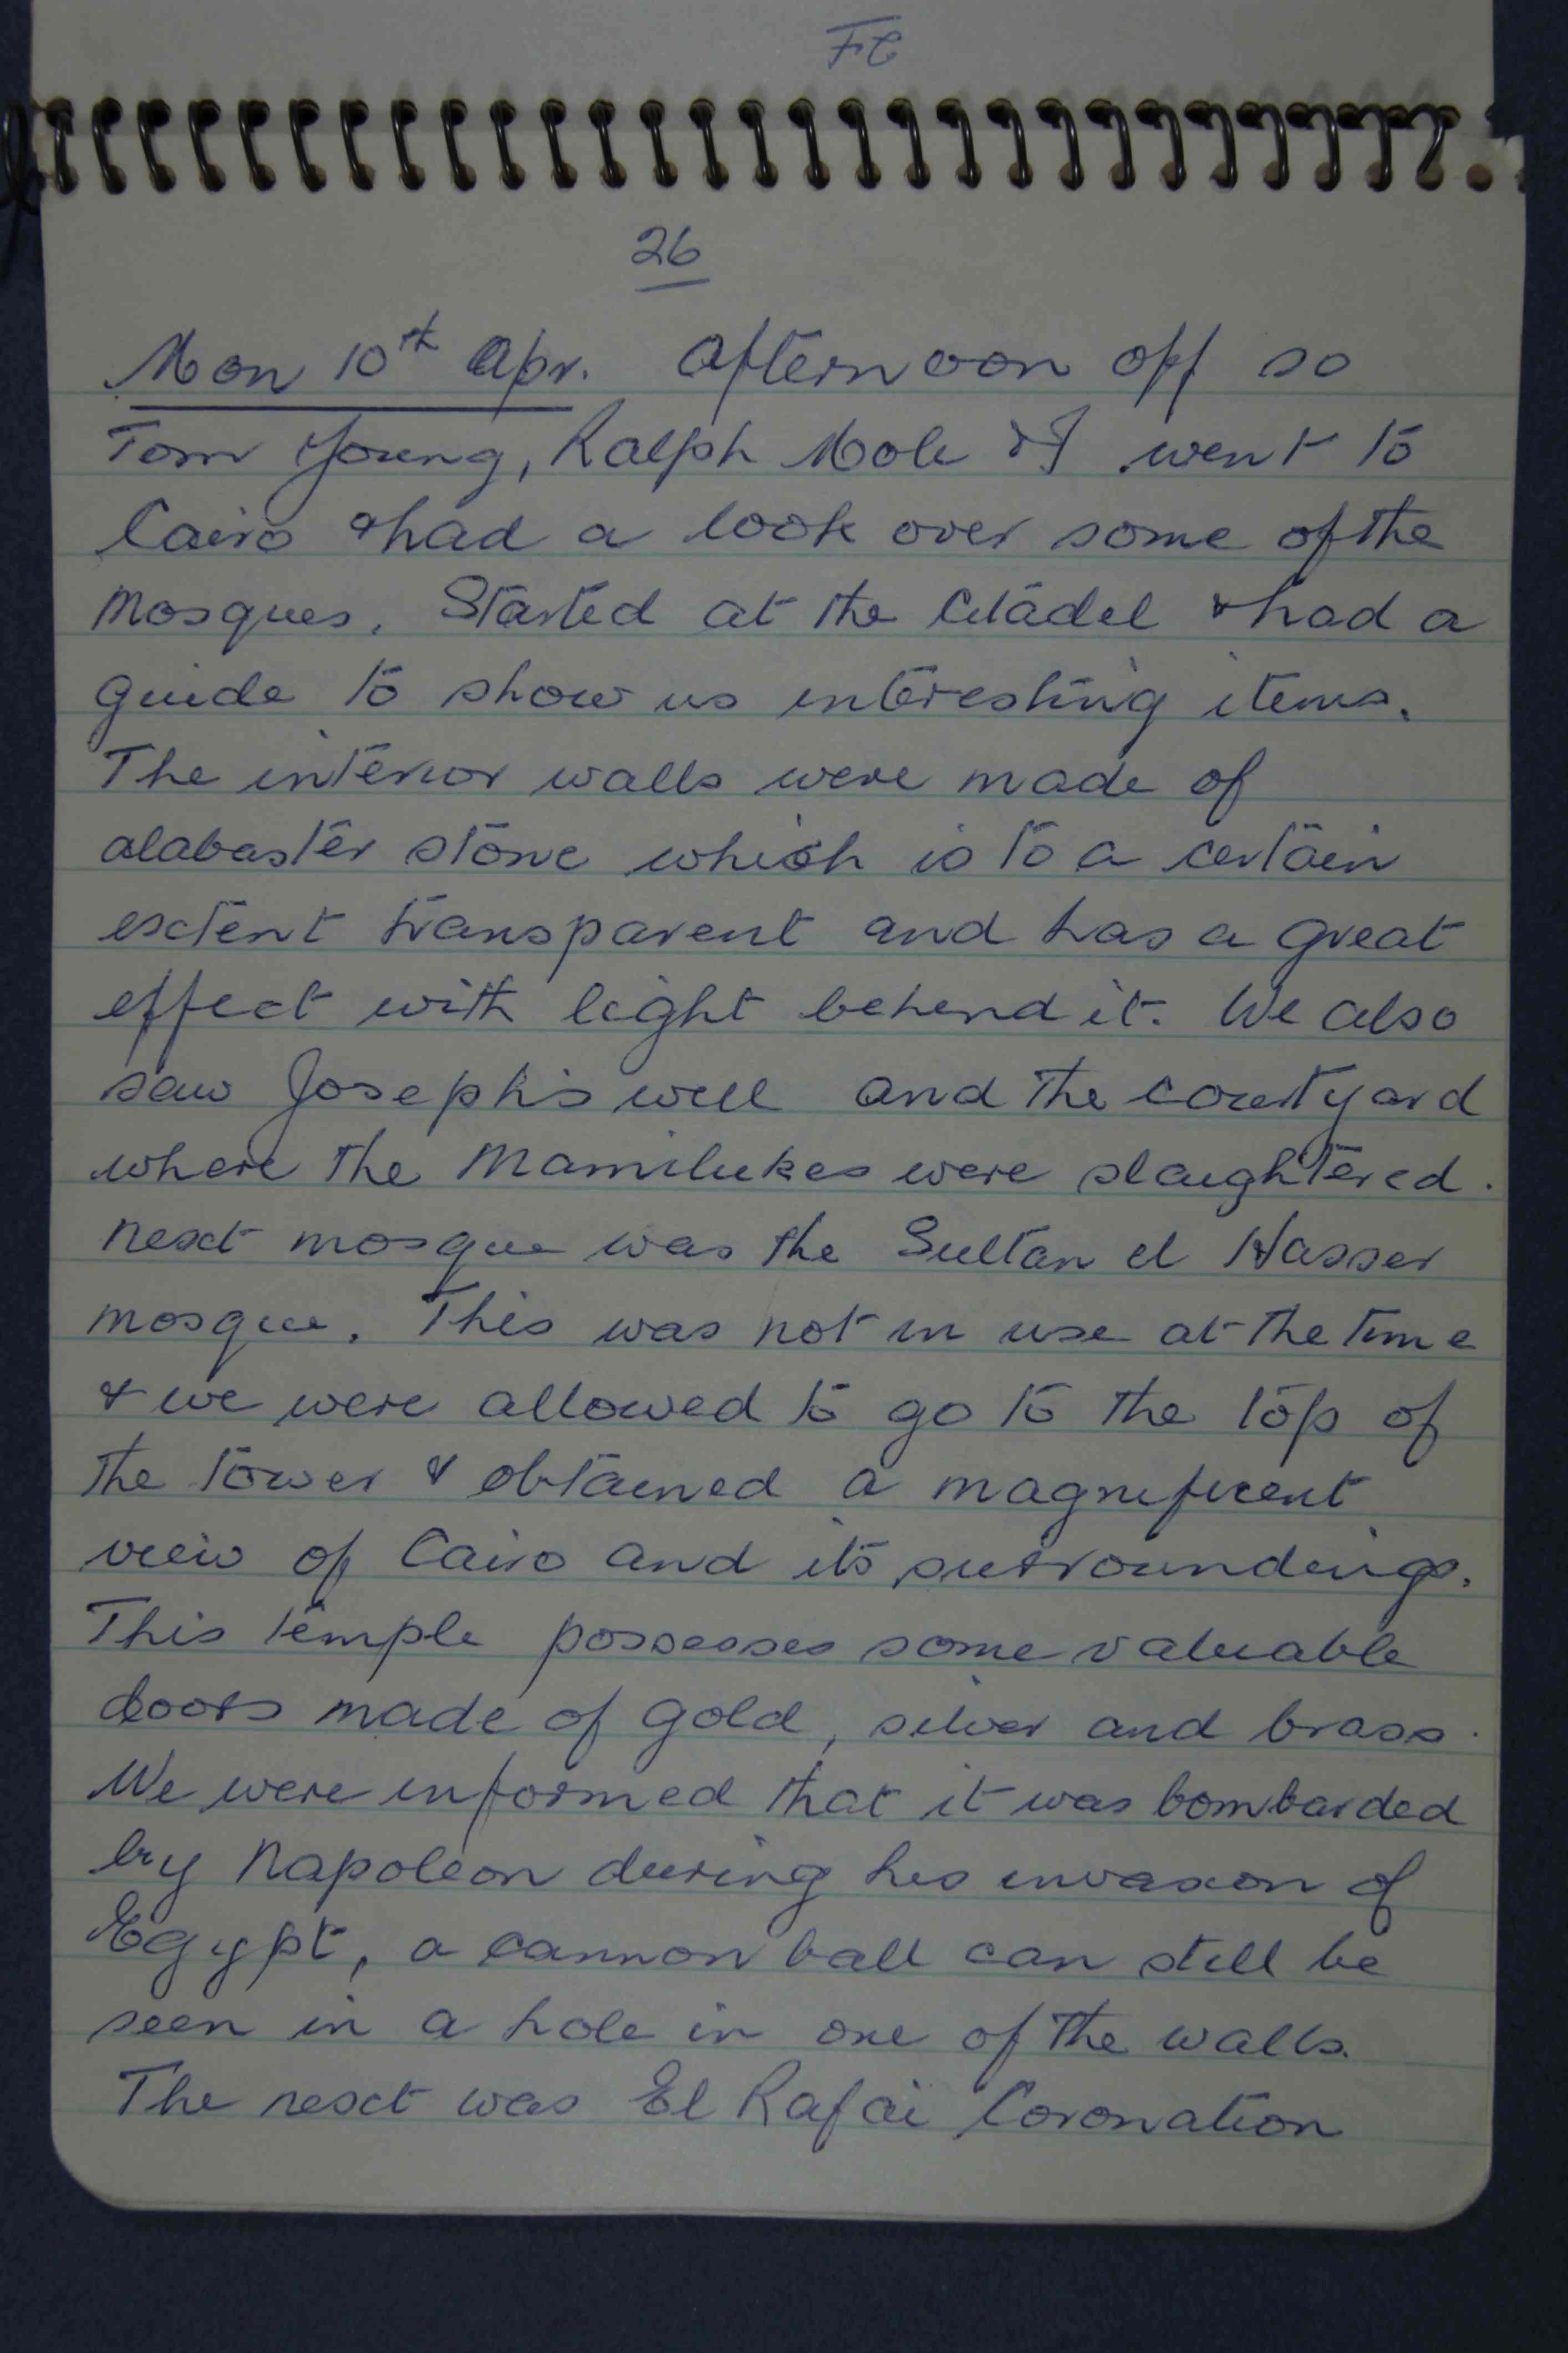 FC
26
Mon 10th Apr. Afternoon off so
Tom Young, Ralph Mole & I went to
Cairo & had a look over some of the
mosques. Started at the Citadel & had a
guide to show us interesting items.
The interior walls were made of
alabaster stone which is to a certain
extent transparent and has a great
effect with light behind it. We also
saw Joseph's well and the courtyard
where the Mamilukes were slaughtered.
Next mosque was the Sultan el Hasser
mosque. This was not in use at the time
& we were allowed to go to the top of
the tower & obtained a magnificent
view of Cairo and its surroundings.
This temple possesses some valuable
doors made of gold, silver and brass.
We were informed that it was bombarded
by Napoleon during his invasion of
Egypt, a cannon ball can still be
seen in a hole in one of the walls.
The next was El Rafai Coronation